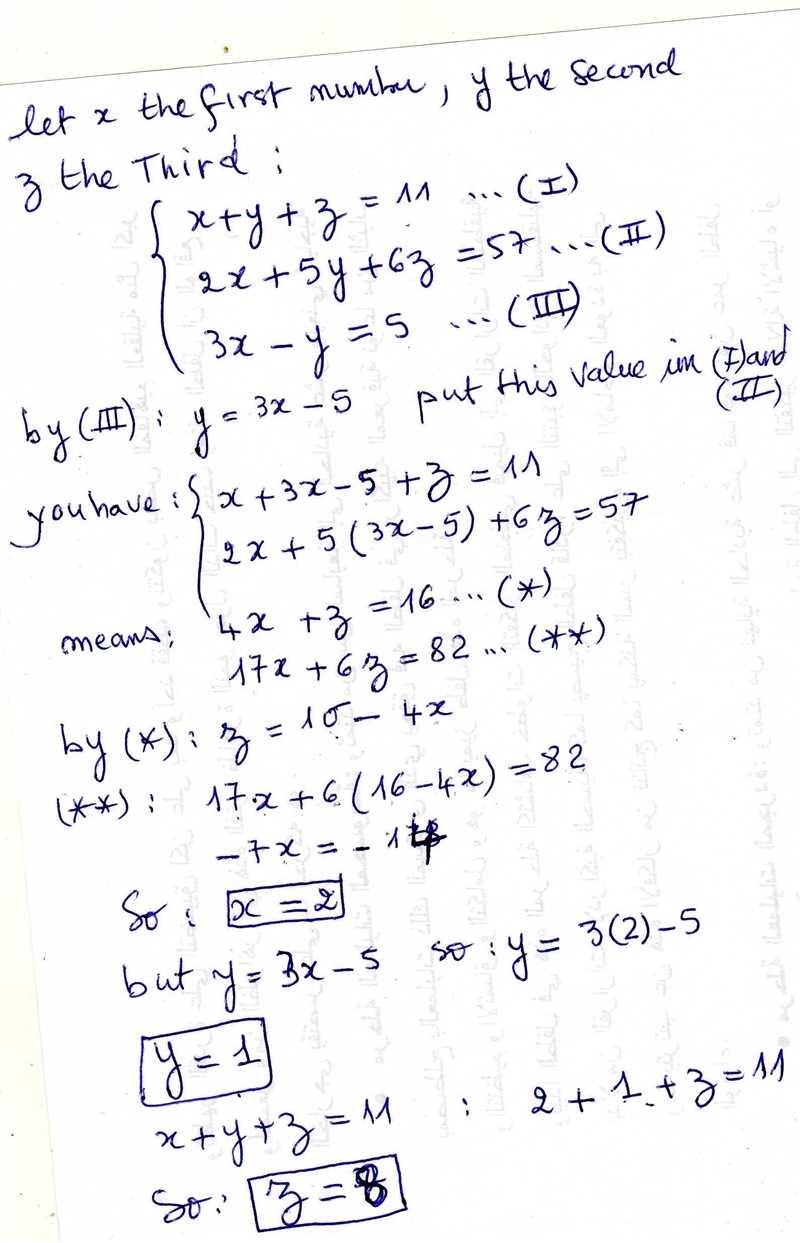 let x the first number, y the second
z the Third :
x+y+z = 11 ... (I)
2x+5y+6z = 57 ... (II)
3x - y = 5 ... (III)
by (III) : y = 3x - 5 put this value in (I) and (II)
you have : x + 3x - 5 + z = 11
2x + 5(3x-5) + 6z = 57
means : 4x + z = 16 ... (*)
17x + 6z = 82 ... (**)
by (*) : z = 16 - 4x
(**) : 17x + 6(16-4x) = 82
-7x = -14
So : x = 2
but y = 3x - 5 so : y = 3(2) - 5
y = 1
x+y+z = 11 : 2 + 1 + z = 11
So : z = 8